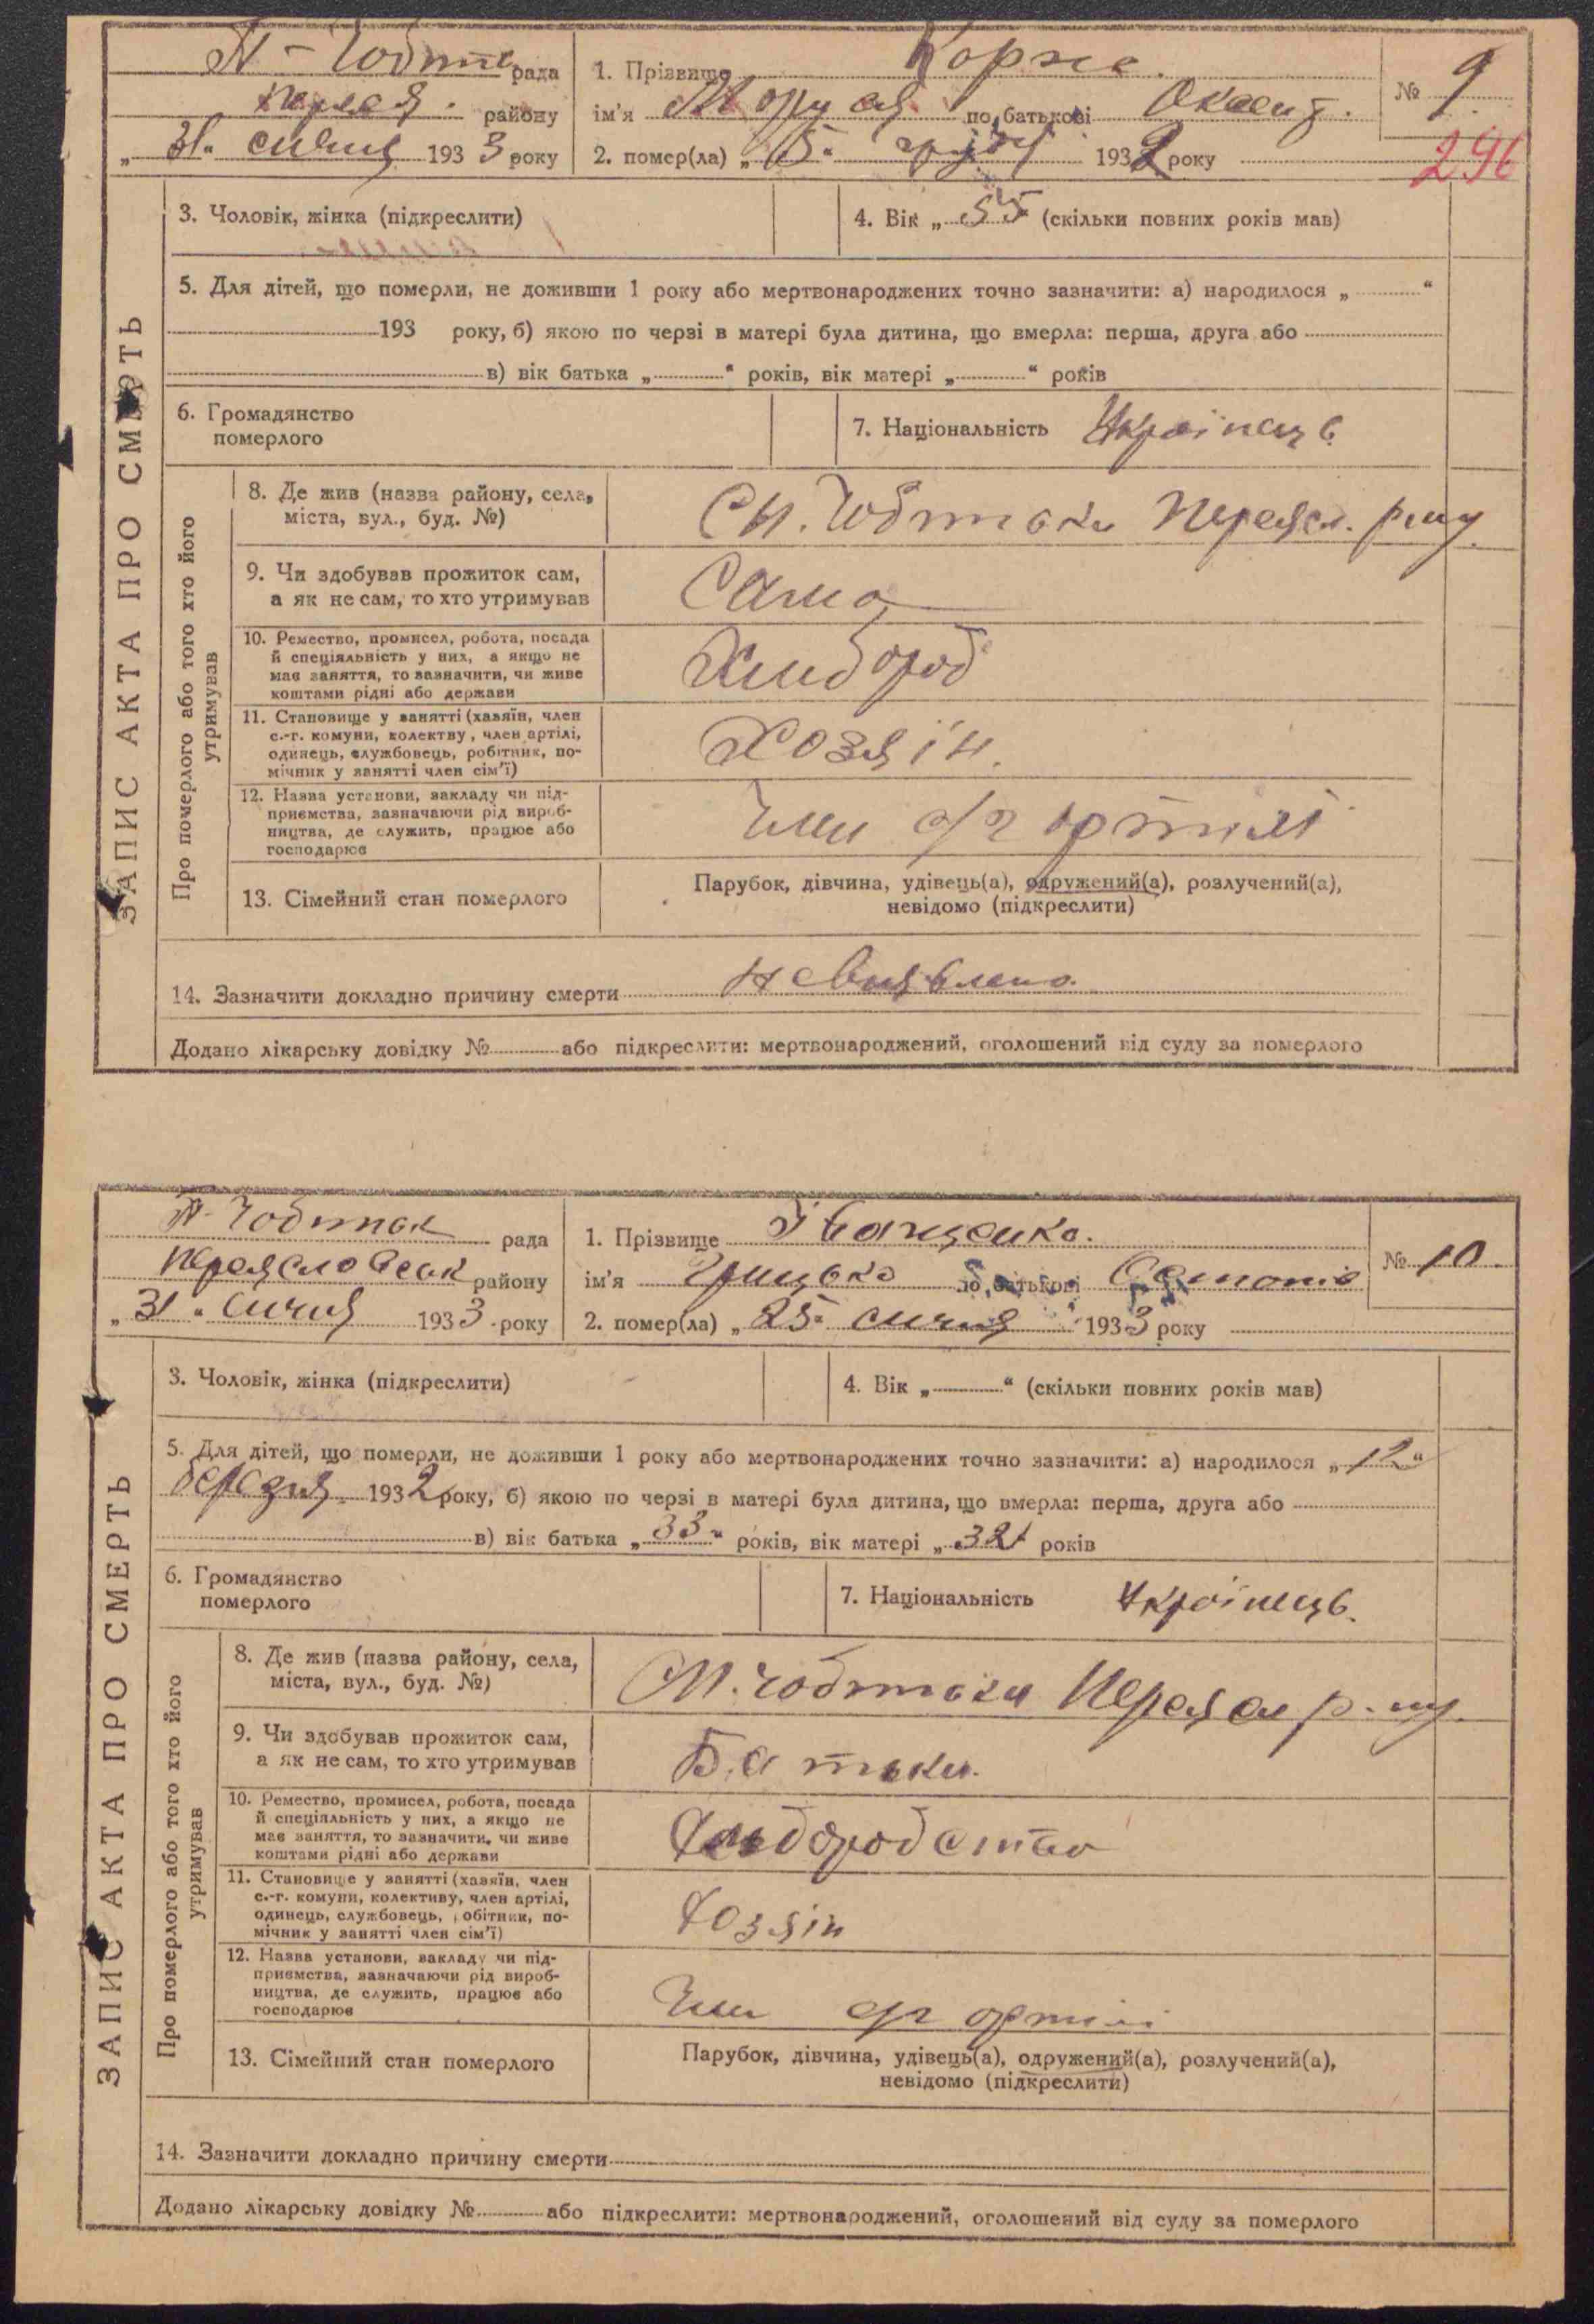 рада
району
„ 31 “ січня 1933 року
1. Прізвище Корж
ім'я по батькові
2. помер(ла) „ 5 “ 1932 року
№ 9
296
ЗАПИС АКТА ПРО СМЕРТЬ
3. Чоловік, жінка (підкреслити)
4. Вік „ 55 “ (скільки повних років мав)
5. Для дітей, що померли, не доживши 1 року або мертвонароджених точно зазначити: а) народилося „ “
193 року, б) якою по черзі в матері була дитина, що вмерла: перша, друга або
в) вік батька „ “ років, вік матері „ “ років
6. Громадянство
померлого
7. Національність Українець
Про померлого або того хто його
утримував
8. Де жив (назва району, села,
міста, вул., буд. №)
Чобітьки Переясл. р-ну
9. Чи здобував прожиток сам,
а як не сам, то хто утримував
Сама
10. Ремество, промисел, робота, посада
й спеціяльність у них, а якщо не
має заняття, то зазначити, чи живе
коштами рідні або держави
Хлібороб
11. Становище у занятті (хазяїн, член
с.-г. комуни, колектву, член артілі,
одинець, службовець, робітник, по-
мічник у занятті член сім'ї)
Хозяін.
12. Назва установи, закладу чи під-
приємства, зазначаючи рід вироб-
ництва, де служить, працює або
господарює
Член с/г артілі
13. Сімейний стан померлого
Парубок, дівчина, удівець(а), одружений(а), розлучений(а),
невідомо (підкреслити)
14. Зазначити докладно причину смерти невиявлено.
Додано лікарську довідку № або підкреслити: мертвонароджений, оголошений від суду за померлого
рада
району
„ 31 “ січня 1933 року
1. Прізвище Іващенко.
ім'я Грицько по батькові
2. помер(ла) „ 25 “ січня 1933 року
№ 10.
ЗАПИС АКТА ПРО СМЕРТЬ
3. Чоловік, жінка (підкреслити)
4. Вік „ “ (скільки повних років мав)
5. Для дітей, що померли, не доживши 1 року або мертвонароджених точно зазначити: а) народилося „ 12 “
березня 1932 року, б) якою по черзі в матері була дитина, що вмерла: перша, друга або
в) вік батька „ 33 “ років, вік матері „ 32 “ років
6. Громадянство
померлого
7. Національність Українець.
Про померлого або того хто його
утримував
8. Де жив (назва району, села,
міста, вул., буд. №)
Чобітьки Переясл р-ну.
9. Чи здобував прожиток сам,
а як не сам, то хто утримував
Батьки.
10. Ремество, промисел, робота, посада
й спеціяльність у них, а якщо не
має заняття, то зазначити, чи живе
коштами рідні або держави
Хліборобство
11. Становище у занятті (хазяїн, член
с.-г. комуни, колективу, член артілі,
одинець, службовець, робітник, по-
мічник у занятті член сім'ї)
Хозяін
12. Назва установи, закладу чи під-
приємства, зазначаючи рід вироб-
ництва, де служить, працює або
господарює
Член с/г артілі
13. Сімейний стан померлого
Парубок, дівчина, удівець(а), одружений(а), розлучений(а),
невідомо (підкреслити)
14. Зазначити докладно причину смерти
Додано лікарську довідку № або підкреслити: мертвонароджений, оголошений від суду за померлого